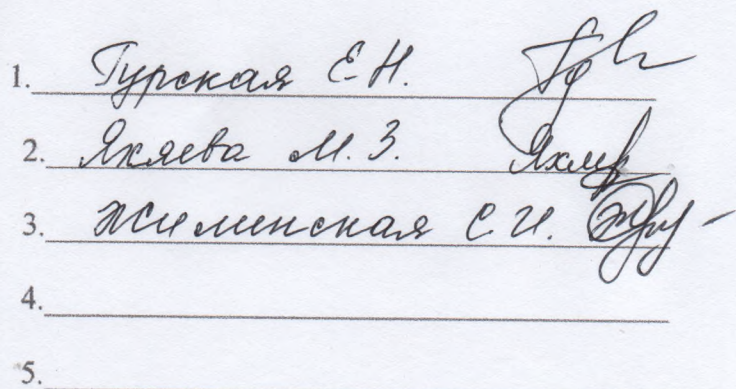 1. Гурская Е.Н.
2. Яхяева М.З.
3. Жилинская С.И.
4.
5.